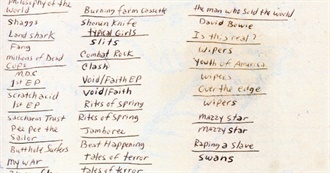 Philosophy of the
World
Shaggs
Land shark
Fang
millions of Dead
Cops
M.D.C
1st EP
Scratch acid
1st EP
Saccharin Trust
Pee pee the
Sailor
Butthole Surfers
My WAr
Burning farm Cassette
Shonen Knife
typical Girls
slits
Combat Rock
Clash
Void/Faith EP
Void/Faith
Rites of Spring
Rites of Spring
Jamboree
Beat Happening
tales of terror
tales of terror
the man who sold the world
David Bowie
Is this real?
wipers
Youth of America
wipers
Over the edge
wipers
mazzy star
mazzy star
Raping a slave
swans